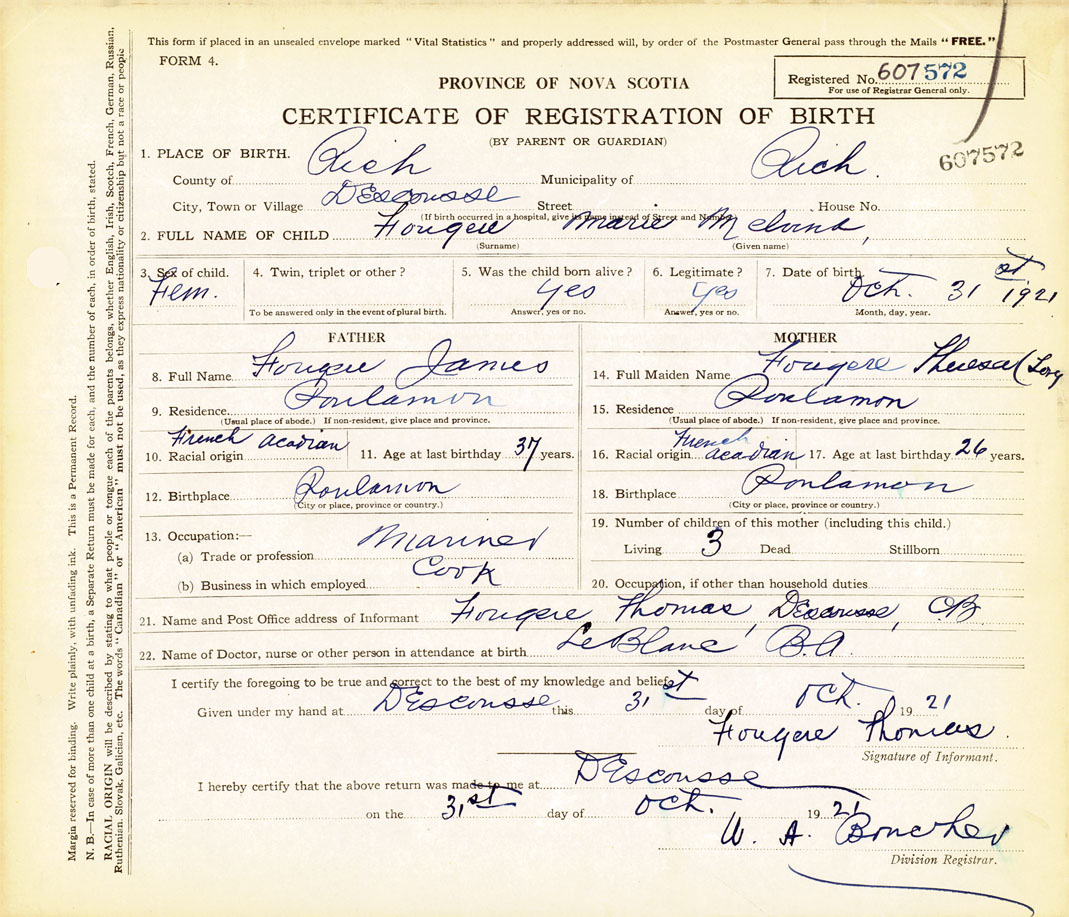 This form if placed in an unsealed envelope marked "Vital Statistics" and properly addressed will, by order of the Postmaster General pass through the Mails "FREE."
FORM 4.
Registered No. 607572
For use of Registrar General only.
PROVINCE OF NOVA SCOTIA
CERTIFICATE OF REGISTRATION OF BIRTH
(BY PARENT OR GUARDIAN)
607572
1. PLACE OF BIRTH.
County of Rich Municipality of Rich.
City, Town or Village DEscousse Street House No.
(If birth occurred in a hospital, give its name instead of Street and Number)
2. FULL NAME OF CHILD Fougere Marie Melvina,
(Surname) (Given name)
3. Sex of child. Fem.
4. Twin, triplet or other?
To be answered only in the event of plural birth.
5. Was the child born alive? Yes
Answer, yes or no.
6. Legitimate? Yes
Answer, yes or no.
7. Date of birth. Oct. 31st 1921
Month, day, year.
FATHER
8. Full Name Fougere James
9. Residence Poulamon
(Usual place of abode.) If non-resident, give place and province.
10. Racial origin French acadian 11. Age at last birthday 37 years.
12. Birthplace Poulamon
(City or place, province or country.)
13. Occupation:—
(a) Trade or profession Mariner
(b) Business in which employed Cook
MOTHER
14. Full Maiden Name Fougere Theresa
15. Residence Poulamon
(Usual place of abode.) If non-resident, give place and province.
16. Racial origin French acadian 17. Age at last birthday 26 years.
18. Birthplace Poulamon
(City or place, province or country.)
19. Number of children of this mother (including this child.)
Living 3 Dead Stillborn
20. Occupation, if other than household duties
21. Name and Post Office address of Informant Fougere Thomas, DEscousse, CB
22. Name of Doctor, nurse or other person in attendance at birth LeBlanc, B.A.
I certify the foregoing to be true and correct to the best of my knowledge and belief.
Given under my hand at DEscousse this 31st day of Oct. 1921
Fougere Thomas.
Signature of Informant.
I hereby certify that the above return was made to me at DEscousse
on the 31st day of Oct. 1921
W. A. Boucher
Division Registrar.
Margin reserved for binding. Write plainly, with unfading ink. This is a Permanent Record.
N. B.—In case of more than one child at a birth, a Separate Return must be made for each, and the number of each, in order of birth, stated.
RACIAL ORIGIN will be described by stating to what people or tongue each of the parents belongs, whether English, Irish, Scotch, French, German, Russian,
Ruthenian, Slovak, Galician, etc. The words "Canadian" or "American" must not be used, as they express nationality or citizenship but not a race or people